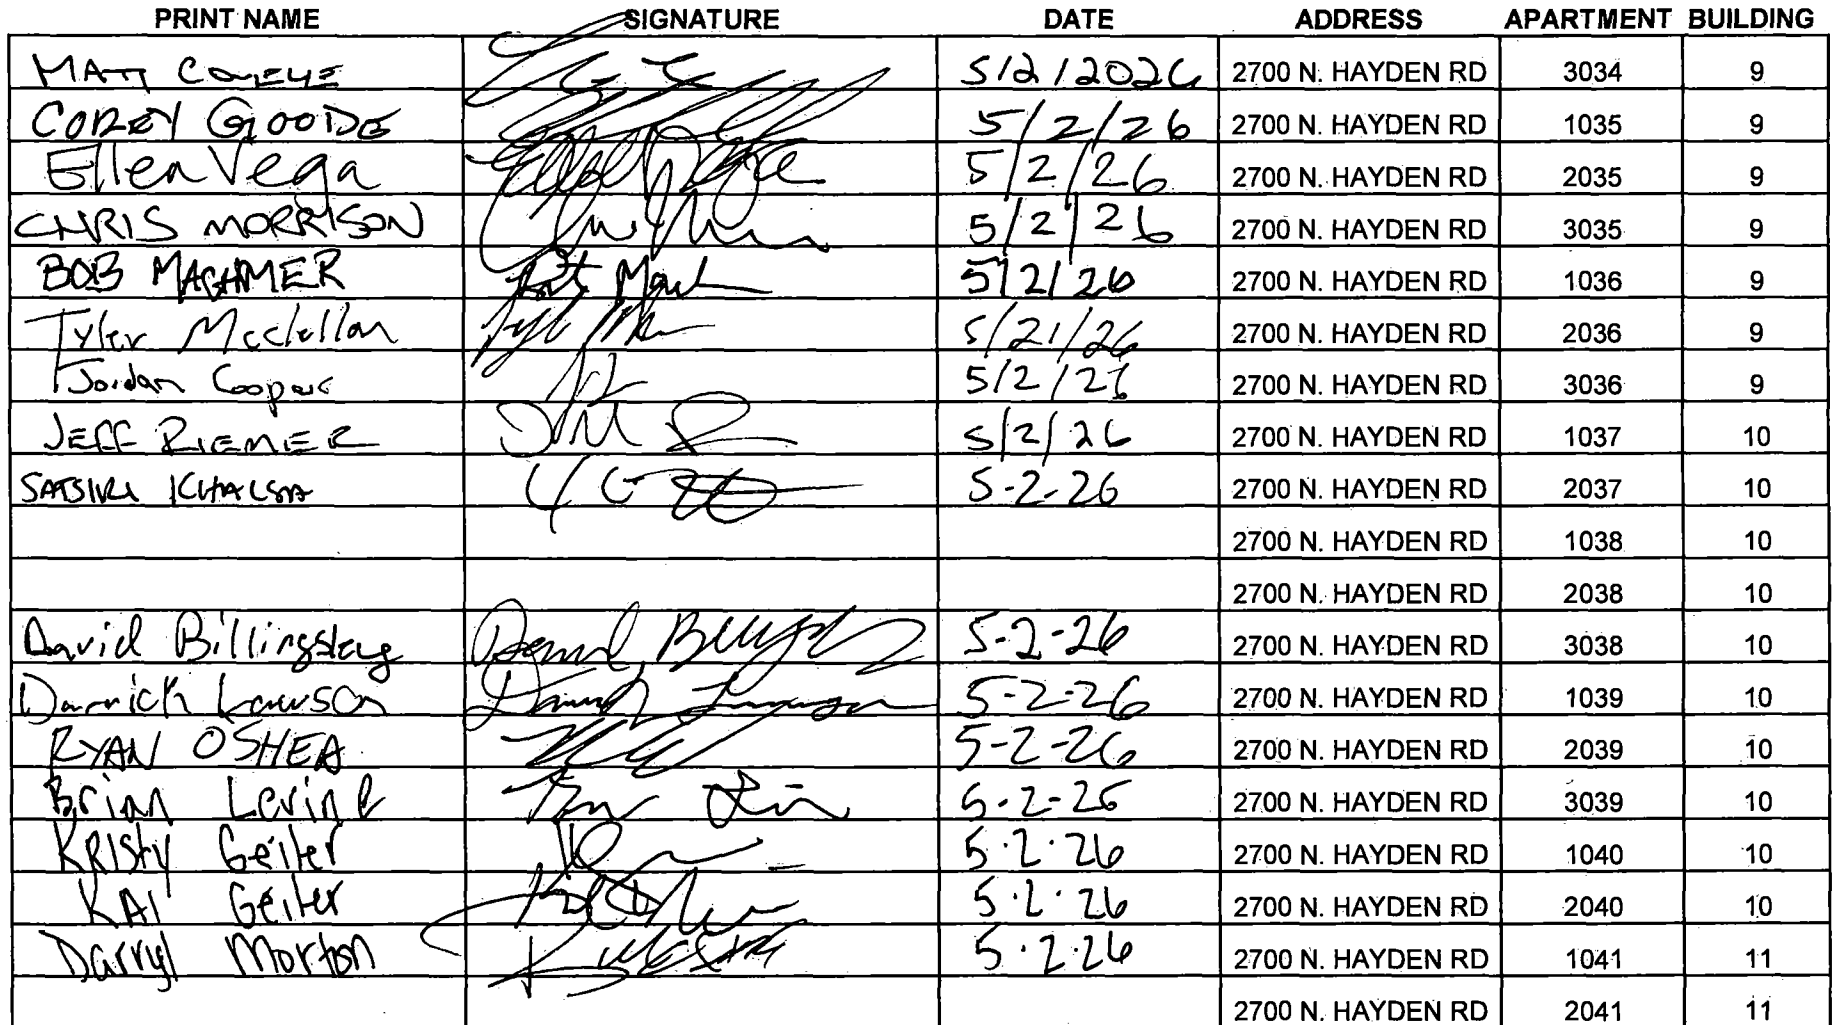 PRINT NAME SIGNATURE DATE ADDRESS APARTMENT BUILDING
MATT 5/2/2026 2700 N. HAYDEN RD 3034 9
COREY GOODE 5/2/26 2700 N. HAYDEN RD 1035 9
Ellen Vega 5/2/26 2700 N. HAYDEN RD 2035 9
CHRIS MORRISON 5/2/26 2700 N. HAYDEN RD 3035 9
BOB MACHMER 5/2/26 2700 N. HAYDEN RD 1036 9
Tyler Mcclellan 5/21/26 2700 N. HAYDEN RD 2036 9
Jordan Cooper 5/2/26 2700 N. HAYDEN RD 3036 9
JEFF RIEMER 5/2/26 2700 N. HAYDEN RD 1037 10
KHALSA 5-2-26 2700 N. HAYDEN RD 2037 10
2700 N. HAYDEN RD 1038 10
2700 N. HAYDEN RD 2038 10
David Billingsley 5-2-26 2700 N. HAYDEN RD 3038 10
Darrick Lawson 5-2-26 2700 N. HAYDEN RD 1039 10
RYAN OSHEA 5-2-26 2700 N. HAYDEN RD 2039 10
Brian Levine 5-2-26 2700 N. HAYDEN RD 3039 10
KRISty Geiter 5·2·26 2700 N. HAYDEN RD 1040 10
KAI Geiter 5·2·26 2700 N. HAYDEN RD 2040 10
Darryl Morton 5·2·26 2700 N. HAYDEN RD 1041 11
2700 N. HAYDEN RD 2041 11